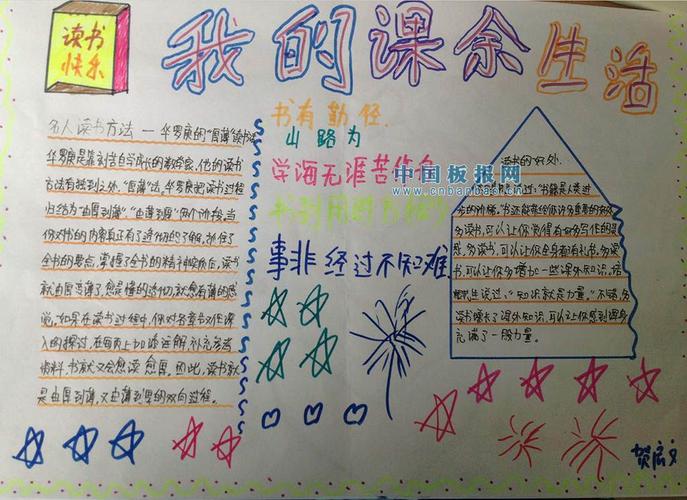 读书
快乐
我的课余生活
名人读书方法 — 华罗庚的"厚薄"读书法
华罗庚是靠刻苦自学成长的数学家,他的读书
方法有独到之处,"厚薄"法,华罗庚把读书过程
归结为"由厚到薄""由薄到厚"两个阶段,当
你对书的内容真正有了
全书的要点,掌握了全书的精神实质后,读书
就由厚变薄了,愈是懂的透彻,就愈有薄的感
觉,如果在读书过程中,你对各章节又作深
入的探讨,在每页上加添注解,补充参考
资料,书就又会愈读愈厚。因此,读书就
是由厚到薄,又由薄到厚的双向过程。
书有勤径
山路为
学海无涯苦作舟
书到用时方恨少
事非经过不知难
中国板报网
www.cnbanbao.cn
读书的好处
说过:"书籍是人类进
步的阶梯。书还能带给你许多重要的好处
多读书,可以让你觉得有
感,多读书,可以让你全身都有礼书,多读
书,可以让你多增加一些课外知识,培
生说过:"知识就是力量。"不错,多
读书增长了课外知识,可以让你感到浑身
充满了一股力量。
贺启文